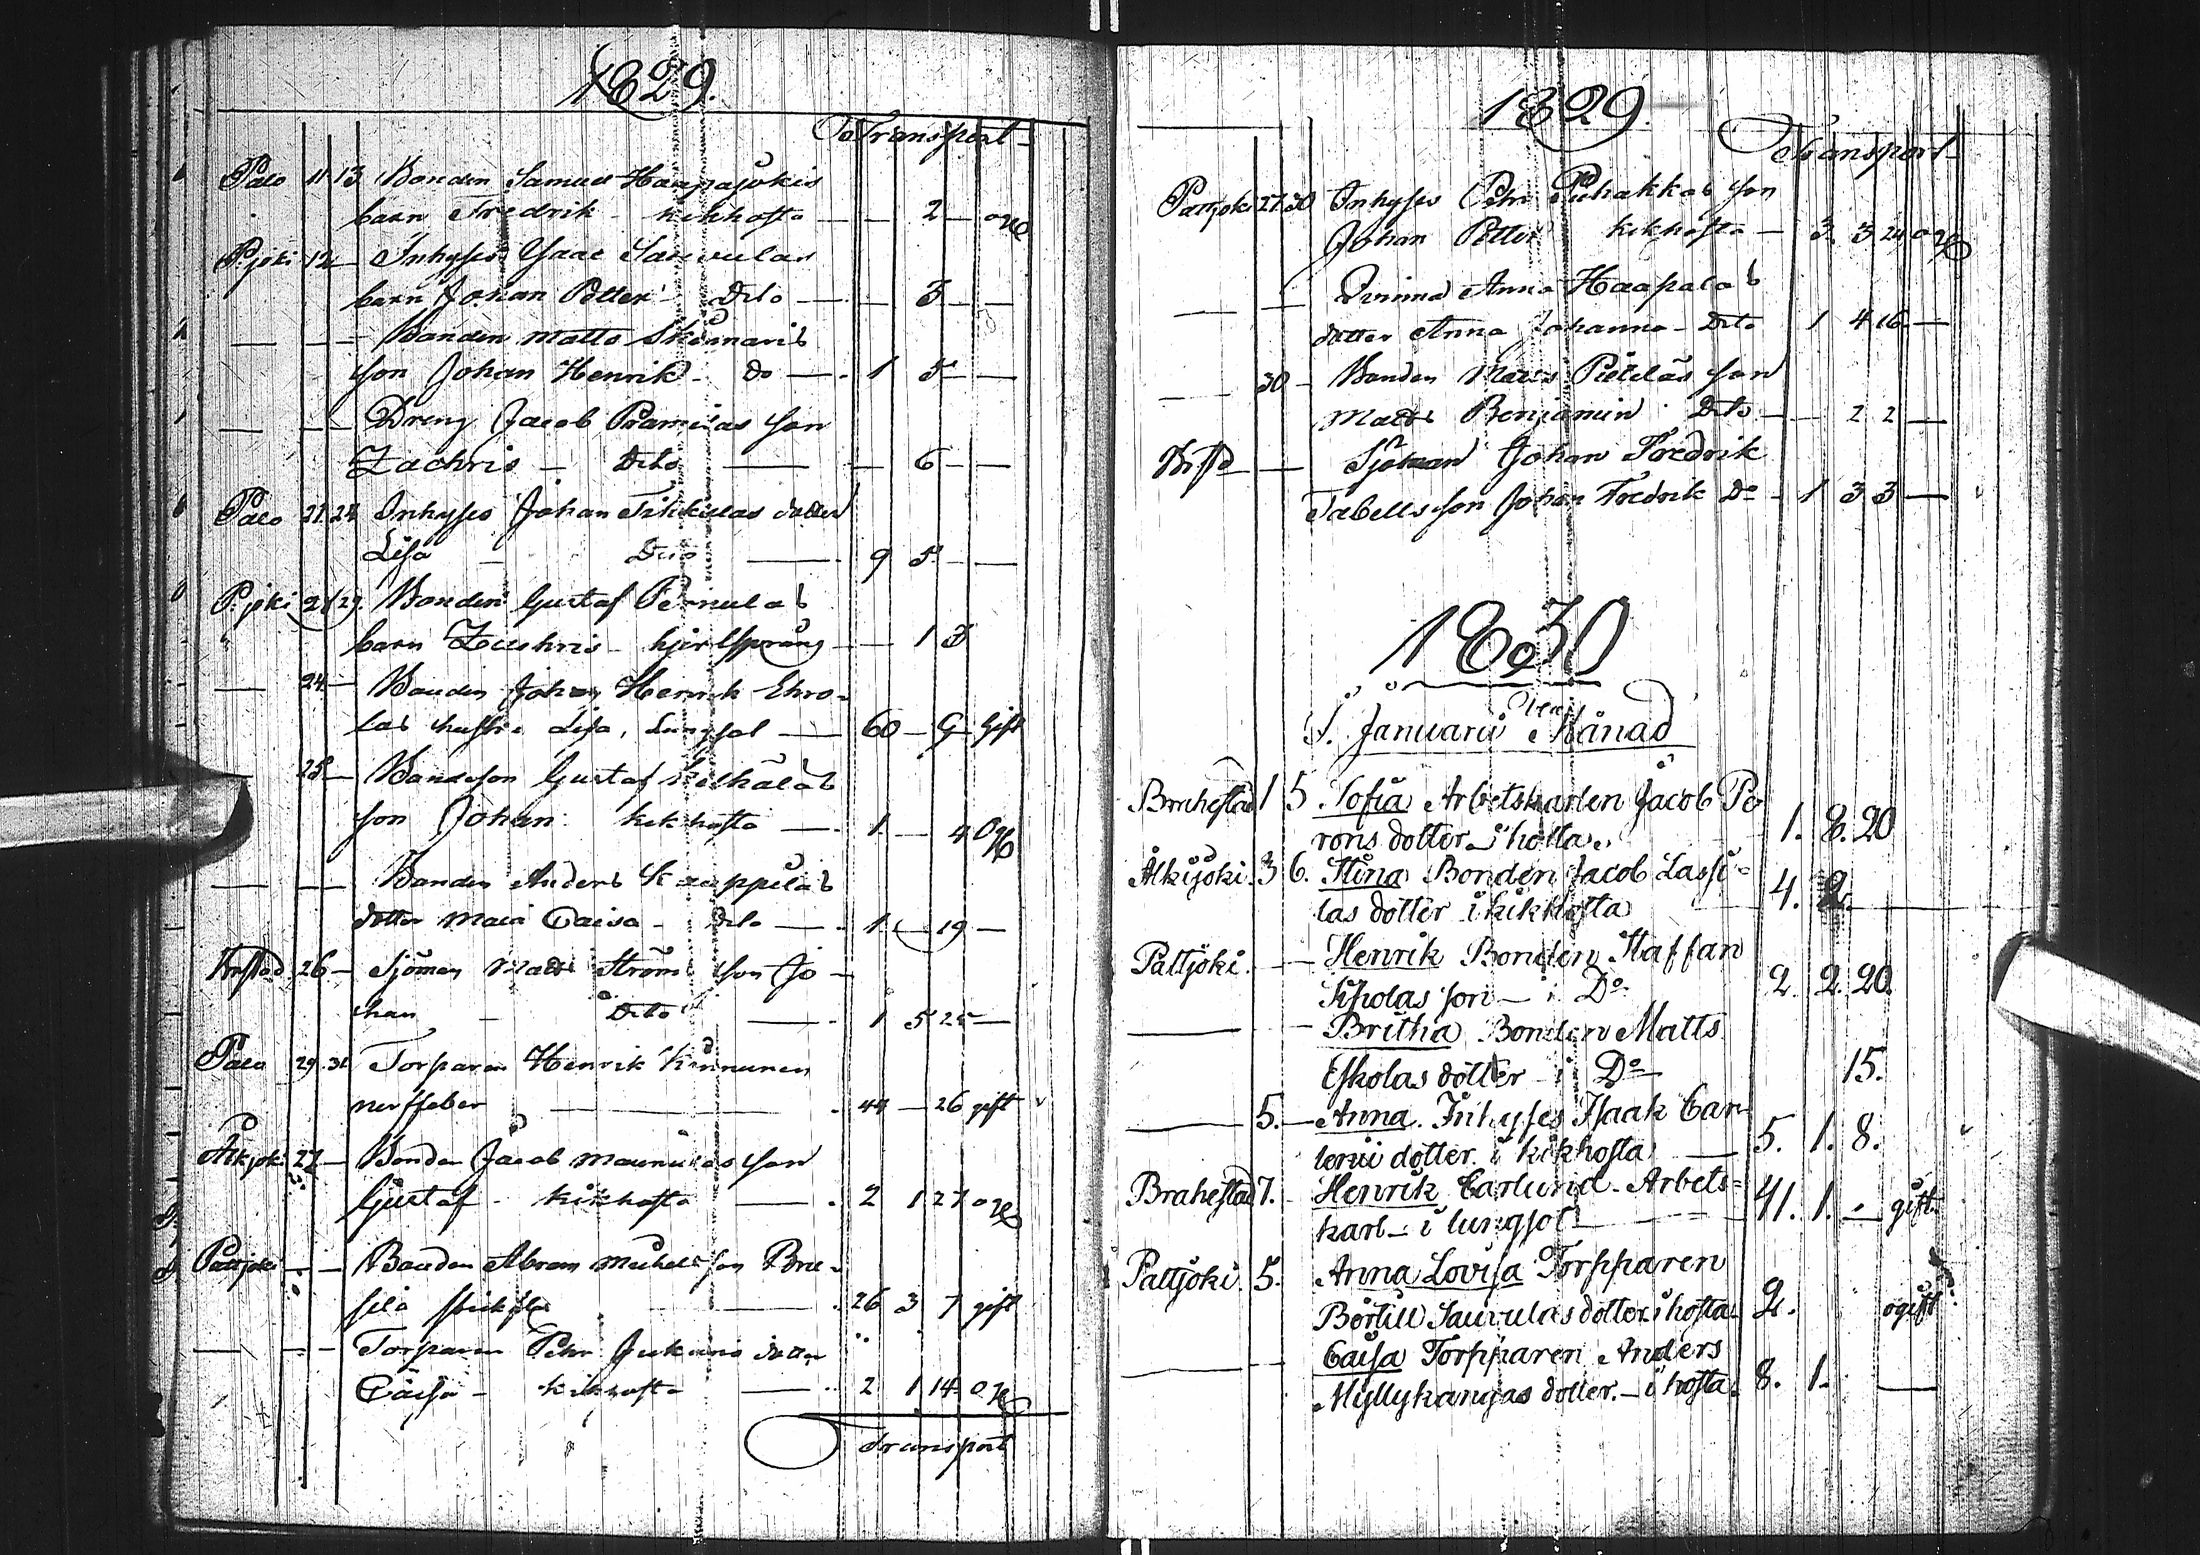 1829.
Transport
Palo 11 13 Bonden Samuel Haapajokis
barn Fredrik kikhosta — — 2 — og
P:joki 12 — Inhyses Isaac Sauvulas
barn Johan Petter Dito — — 3 — —
— — Bonden Matts Skinnaris
son Johan Henrik Do — 1 5 — —
— — Dreng Jacob Pramilas son
Zachris — Dito — — 6 — —
Palo 21 24 Inhyses Johan Tikkalas dotter
Lisa — Dito — 9 5 — —
P:joki 21 29. Bonden Gustaf Pernulas
barn Zachris hjertsprång — — 1 3
— 24 — Bonden Johan Henrik Ehro-
las hustru Lisa, Lungsot — 60 — 9 — gift
25 — Bondeson Gustaf
son Johan kikhosta — 1. — 4 og
— — Bonden Anders Kauppilas
dotter Maria Caisa — Dito — 1 — 19 —
Brstad 26 — Sjöman Matts Ströms son Jo-
han — Dito — 1 5 25 —
Palo 29 31 Torparen Henrik Kinnunen
nerffeber — 44 — 26 gift
Alkjoki 27 — Bonden Jacob Maunulas son
Gustaf — kikhosta — 2 1 27 og
Pattjoki — — Bonden Abram Michelsson
26 3 7 gift
— — Torparen Petr Jukuris dotter
Caisa — kikhosta — 2 1 14 og
Transport
1829.
Transport
Pattjoki 27 30 Inhyses Petr Puhakkas son
Johan Petter kikhosta — 3. 3 24 og
— — Qvinna Anna Haapalas
dotter Anna Johanna — Dito 1 4 16 —
— 30 — Bonden Matts Pietiläs son
Matts Benjamin Dito — — 2 2 —
Brstd — Sjöman Johan Fredrik
Tabells son Johan Fredrik Do — 1 3 3 —
1830
I. Januarii Månad
Brahestad 1 5 Sofia Arbetskarlen Jacob Po
rons dotter i hosta. 1. 8. 20
Alkijoki. 3 6. Stina Bonden Jacob Lassi-
las dotter i kikhosta 4. 2.
Pattjoki. — — Henrik Bonden Staffan
son — i Do 2. 2. 20.
— — Britha Bonden Matts
Eskolas dotter — i Do 15.
— 5. — Anna. Inhyses Isaak Car-
lerui dotter i kikhosta — 5. 1. 8.
Brahestad 7. Henrik Carlund. Arbets-
karl — i lungsot — 41. 1. — gift.
Pattjoki. 5. Anna Lovisa Torpparen
Bertill Sauvulas dotter i hosta. 2. ogift
— — Caisa Torpparen Anders
Myllykangas dotter. — i hosta. 8. 1. —